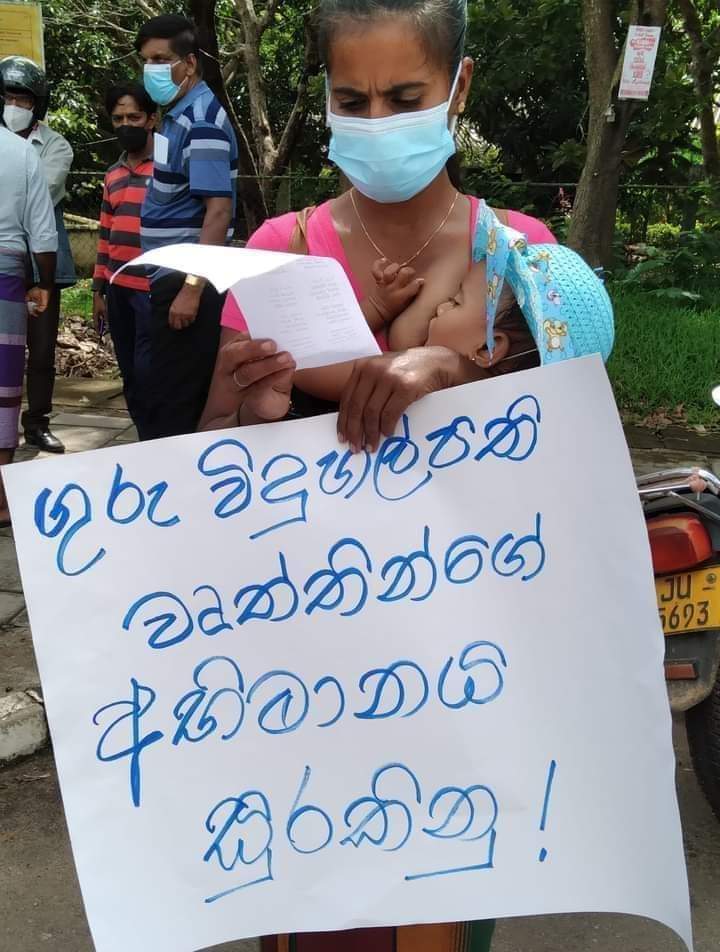 ගුරු විදුහල්පති
වෘත්තින්ගේ
අභිමානය
සුරකිනු !
JU
5693